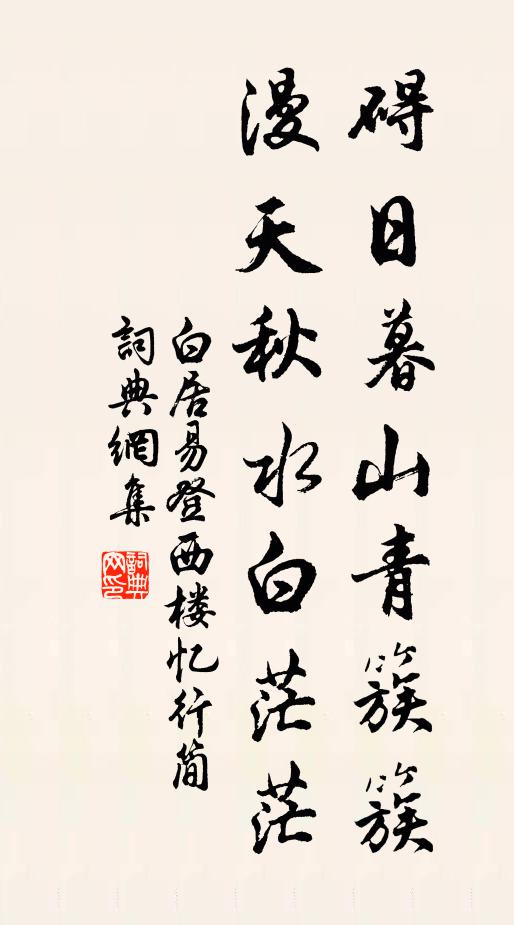 碍日暮山青簇簇
漫天秋水白茫茫
白居易登西楼忆行简
詞典網集
詞典网印